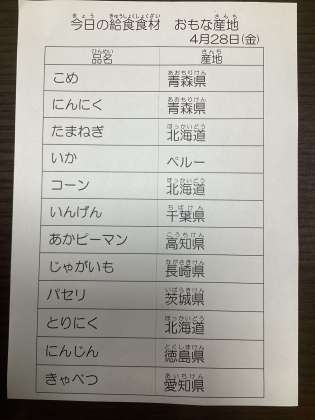 今日の給食食材　おもな産地
4月28日(金)
品名 産地
こめ 青森県
にんにく 青森県
たまねぎ 北海道
いか ペルー
コーン 北海道
いんげん 千葉県
あかピーマン 高知県
じゃがいも 長崎県
パセリ 茨城県
とりにく 北海道
にんじん 徳島県
きゃべつ 愛知県